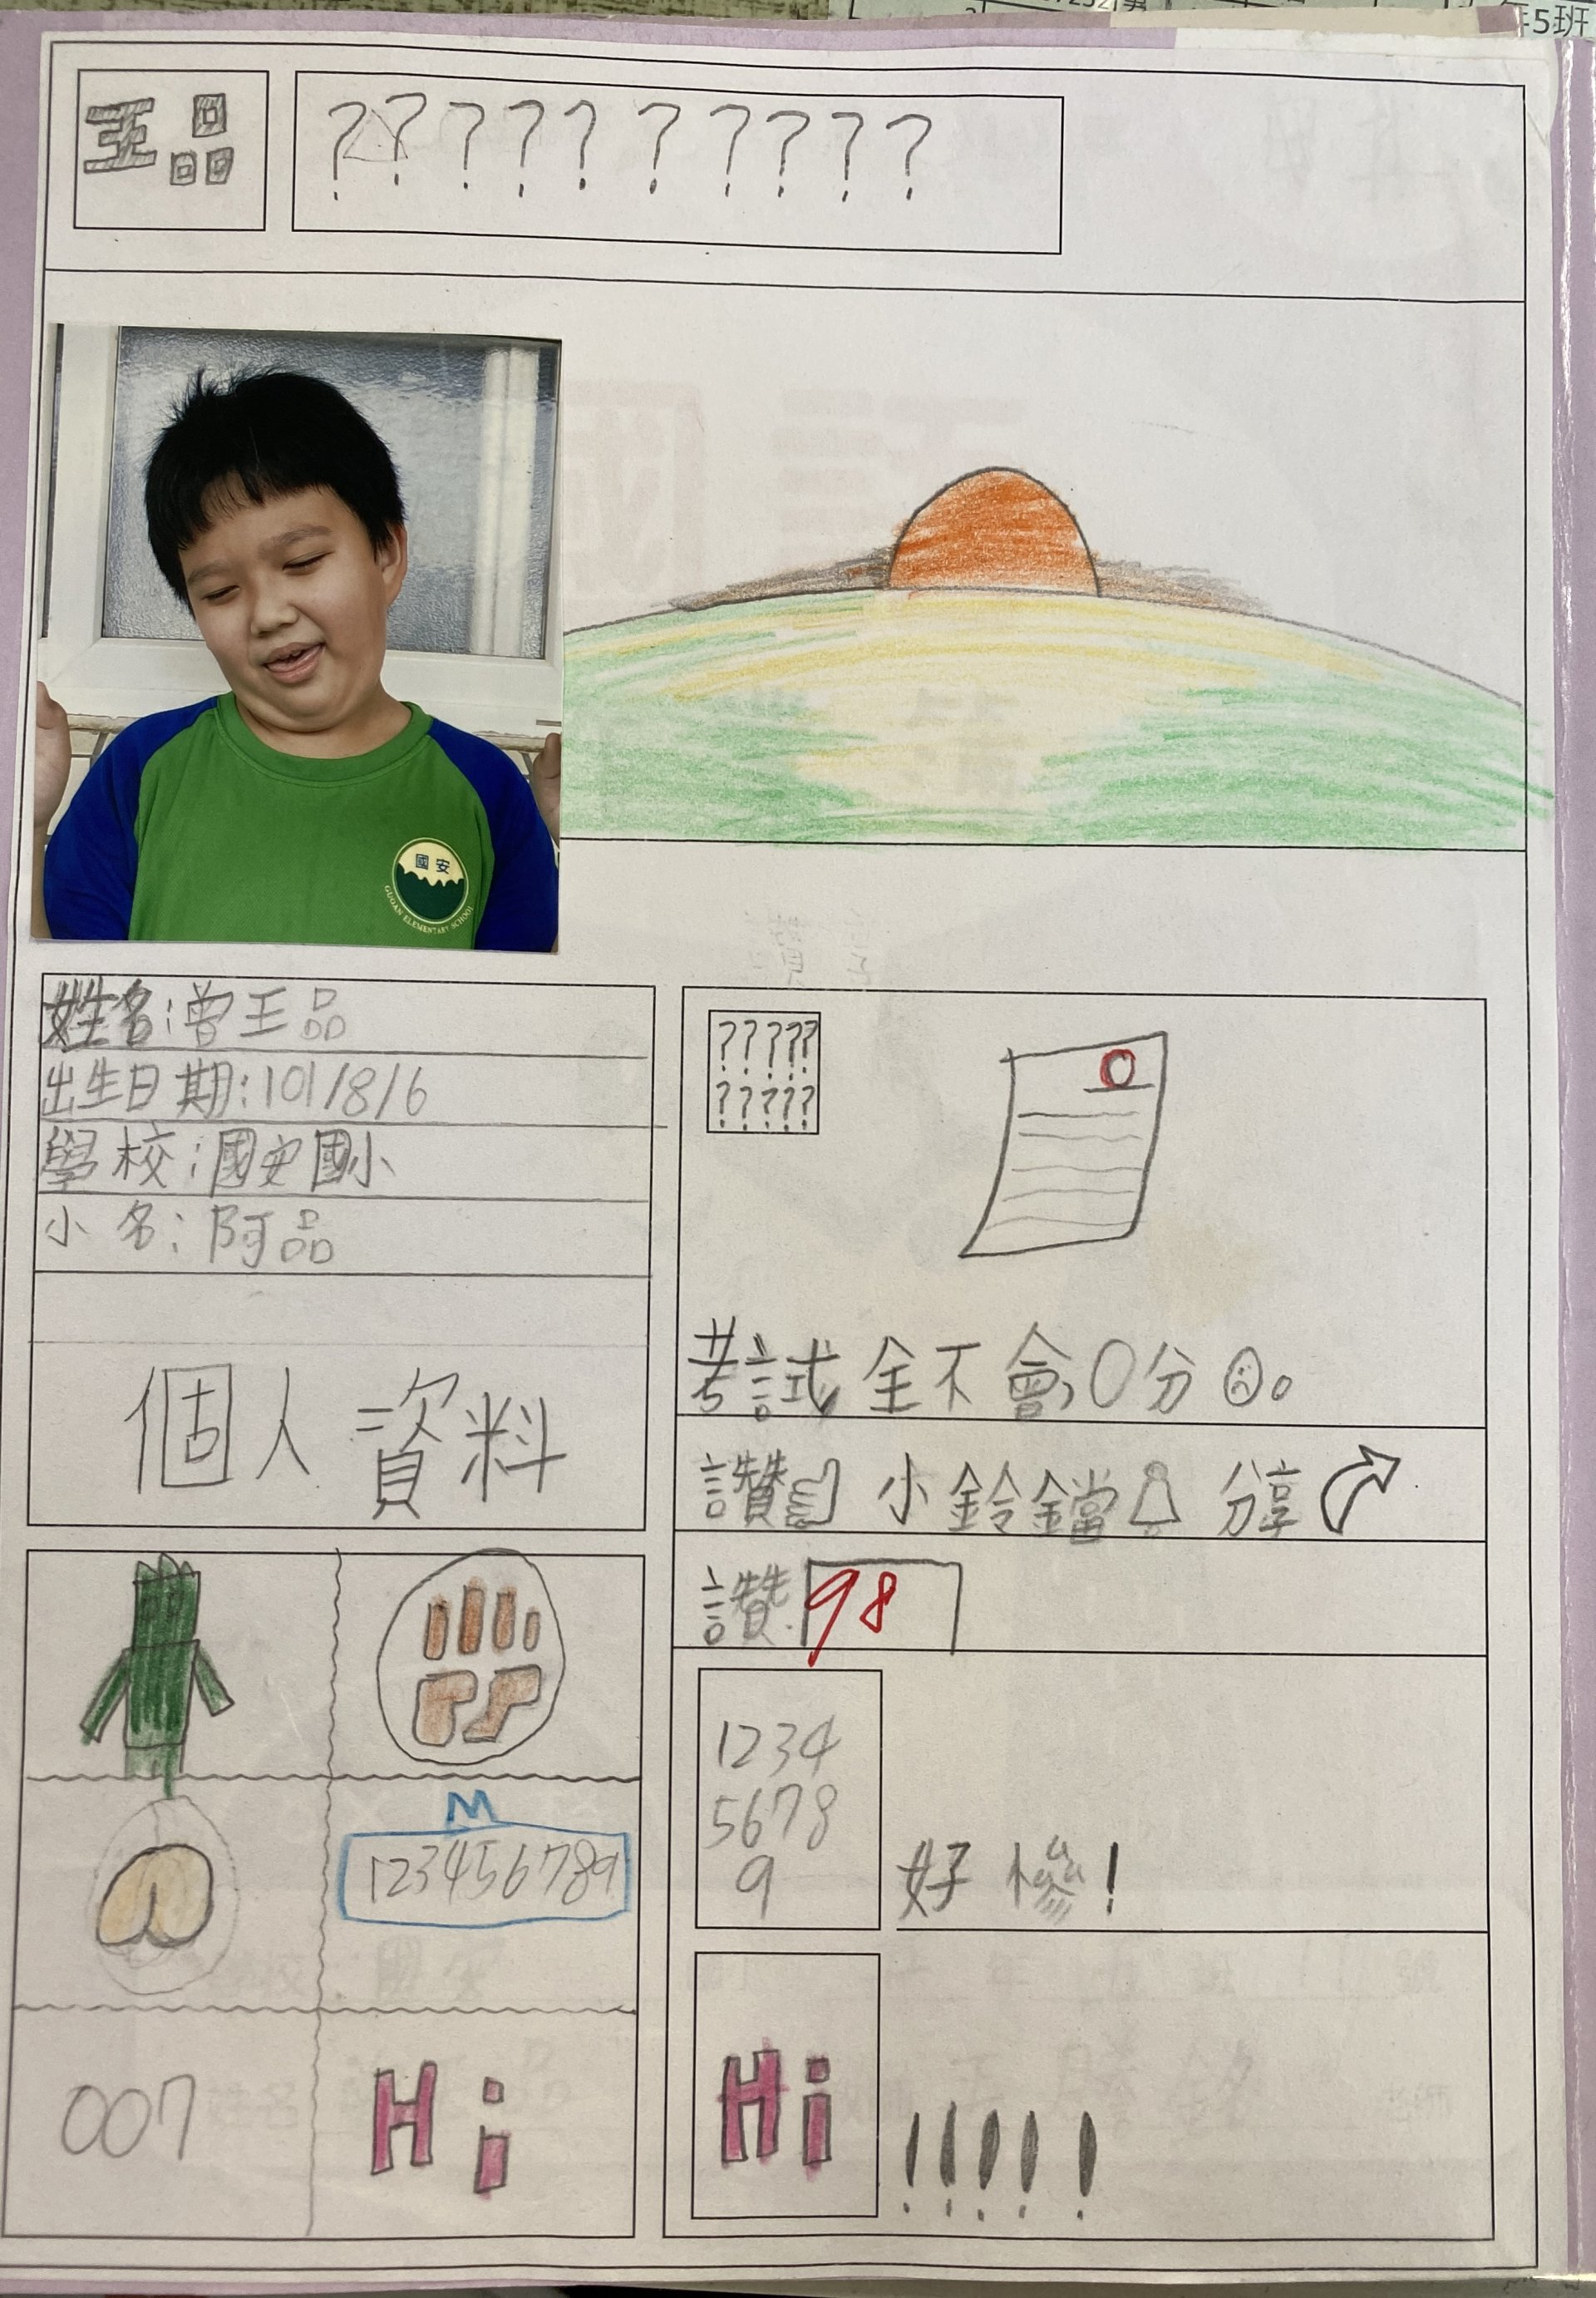 年5班
王品
??????????
國安
GUOAN ELEMENTARY SCHOOL
姓名:曾王品
出生日期:101/8/6
學校:國安國小
小名:阿品
個人資料
?????
?????
0
考試全不會,0分。
讚 小鈴鐺 分享
讚 98
1234
5678
9
好慘!
M
123456789
007
Hi
Hi
!!!!!